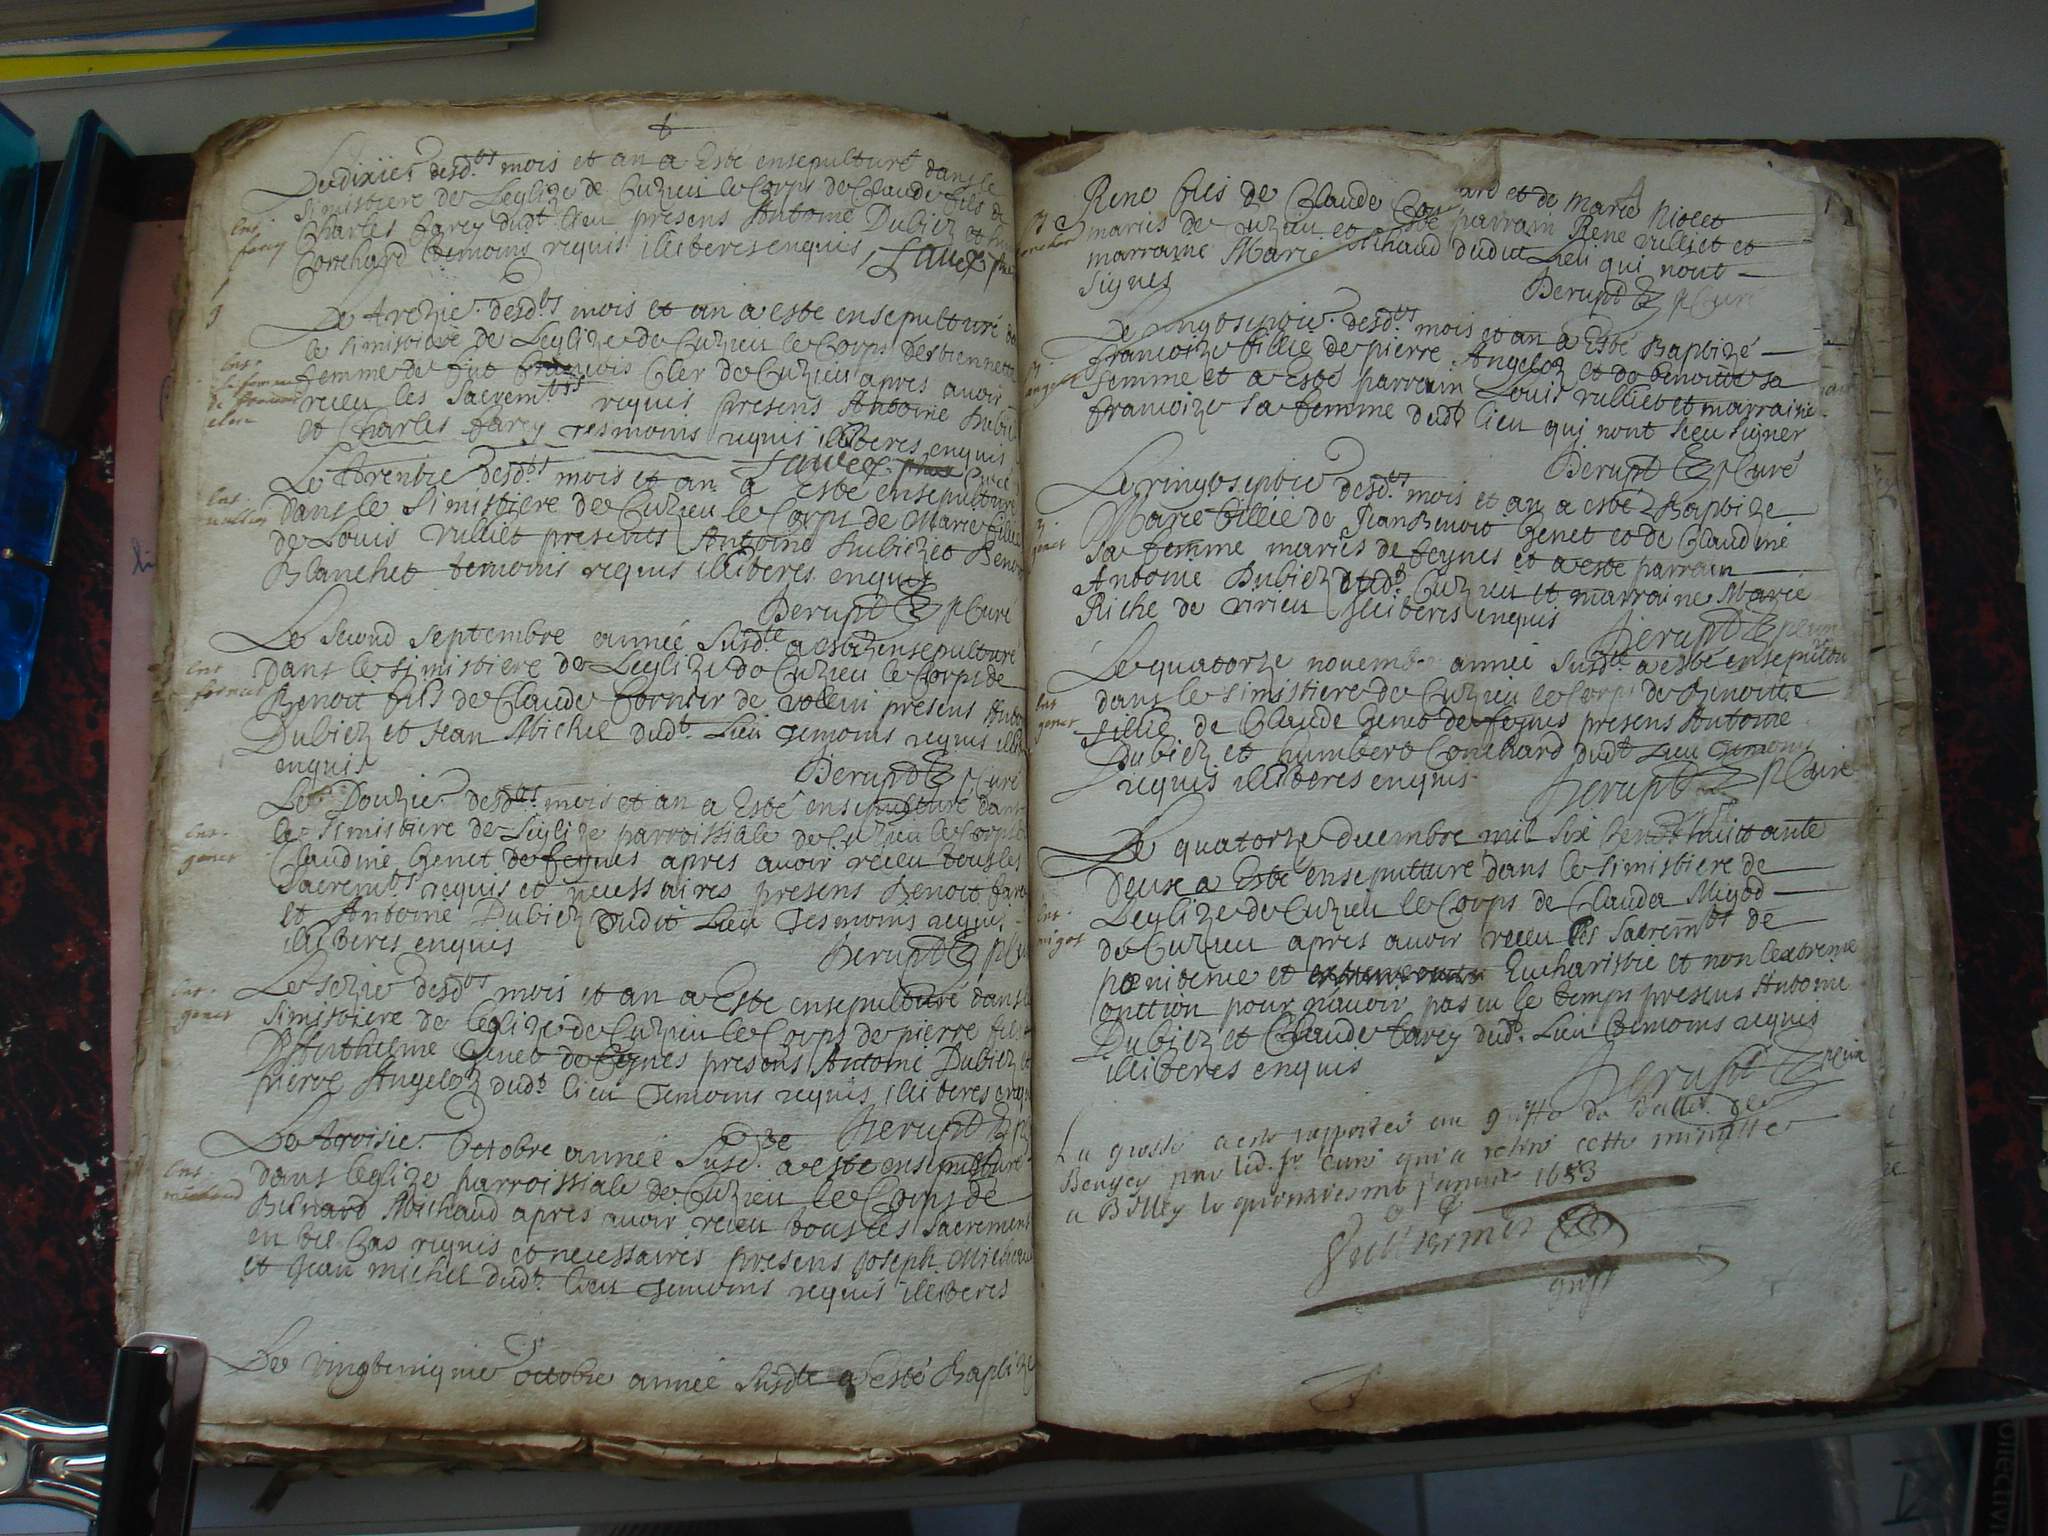 Le dixie desd.ts mois et an a Esté ensepulturé dans le
Simistiere de Leglize de Cuzieu le Corps de Claude fils de
Charles farey dud.t Lieu presens Antoine Dubiez et
Conchard temoins requis illiteres enquis
Ens.
farey
Le trezie. desd.ts mois et an a esté ensepulturé
le simistiere de Leglize de Cuzieu le Corps destiennette
femme de fut francois Cler de Cuzieu apres avoir
receu les Sacrem.ts requis presens Antoine Dubie
et Charles farey tesmoins requis illiteres enquis
Ens.
Le trentie desd.ts mois et an a esté ensepulturé
dans le Simistiere de Cuzieu le Corps de Marie fillie
de Louis Vulliet presents Antoine Dubiez et Benoit
Blanchet temoins requis illiteres enquis
Derupt Curé
Ens.
Le Second Septembre année Susd.te a esté ensepulturé
dans le simistiere de Leglize de Cuzieu le Corps de
Benoit fils de Claude fornier de vollin presens Anto
Dubiez et Jean Michel dud.t Lieu temoins requis illi
enquis
Derupt Curé
Ens.
fornier
Le Douzie. desd.ts mois et an a Esté ensepulturé dans
le Simistiere de Leglize parroissiale de Cuzieu le Corps
Claudine Genet de feynes apres avoir receu tous les
Sacrem.ts requis et necessaires presens Benoit fare
et Antoine Dubiez dudit Lieu Tesmoins requis
illiteres enquis
Derupt
Ens.
genet
Le sezie desd.ts mois et an a Esté ensepulturé dans
Simistiere de leglize de Cuzieu le Corps de pierre fils
D'Anthieme Genet de feynes presens Antoine Dubiez
pierre Angeloz dud.t lieu Temoins requis illiteres enqu
Derupt
Ens.
genet
Le troisie. Octobre année Susd.te a esté ensepulturé
dans leglize parroissiale de Cuzieu le Corps de
Bernard Michaud apres avoir receu tous les Sacremens
en tel Cas requis et necessaires presens Joseph Michau
et Jean Michel dud.t lieu temoins requis illiteres
Ens.
michaud
Le vingtcinquie octobre année Susd.te a esté Baptizé
René fils de Claude Con ard et de Marie Niolet
mariés de Cuzieu et Esté parrain René Vulliet et
marraine Marie Michaud dudit Lieu qui nont
Signes
Derupt Curé
Le vingtseptie. desd.ts mois et an a Esté Baptizé
francoize fillie de pierre Angeloz et de benoitte sa
femme et a Esté parrain Louis Vulliet et marraine
francoize sa femme dud.t lieu qui nont sceu signer
Derupt Curé
Le vingtseptie desd.ts mois et an a esté Baptizé
Marie fillie de Jean Benoit Genet et de Claudine
sa femme mariés de feynes et a esté parrain
Antoine Dubiez dud.t Cuzieu et marraine Marie
Riche de virieu illiteres enquis
Derupt
genet
Le quatorze novemb année Susd.te a esté ensepultu
dans le Simistiere de Cuzieu le Corps de Benoitte
fillie de Claude Genet de feynes presens Antoine
Dubiez et humbert Conchard dud.t Lieu temoins
requis illiteres enquis
Derupt Curé
Ens
genet
Le quatorze decembre mil Six Cent huittante
Deux a Esté ensepulturé dans le Simistiere de
Leglize de Cuzieu le Corps de Clauda Migod
de Cuzieu apres avoir receu les Sacrem.ts de
pœnitence et Eucharistie et non lextreme
onction pour navoir pas eu le temps presens Antoine
Dubiez et Claude farey dud.t Lieu temoins requis
illiteres enquis
Derupt
Ens.
migot
La grosse a esté rapportée au greffe du Balli
Beugey par led. S.r curé qui a retiré cette minutte
a Belley le janvier 1683
greff